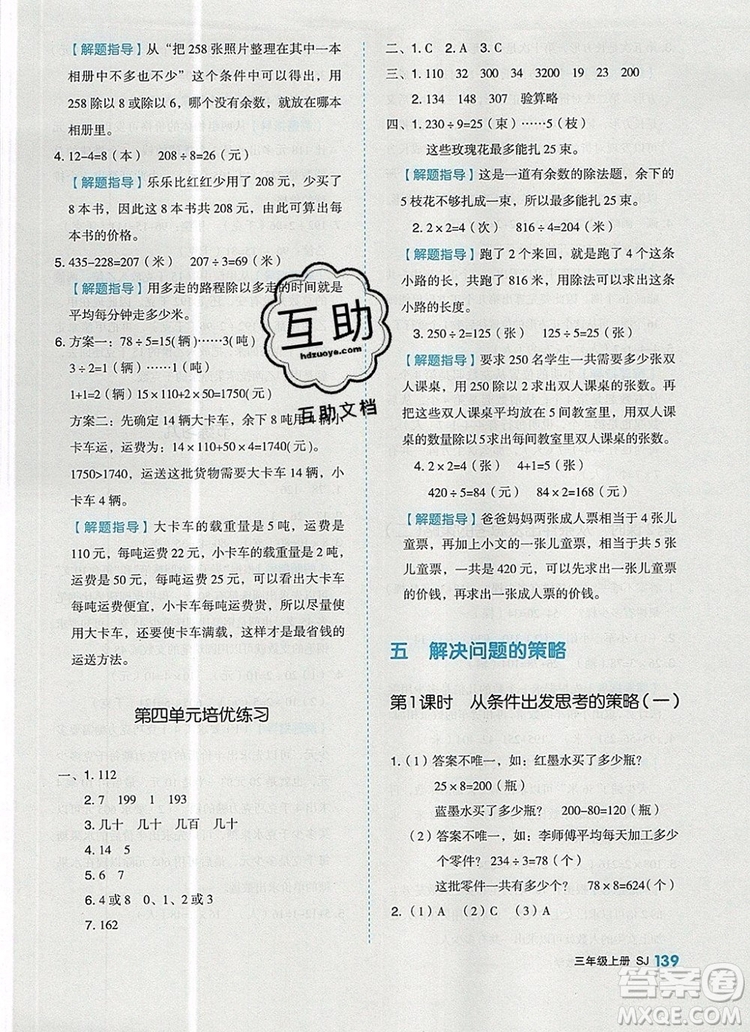 【解题指导】 从“把 258 张照片整理在其中一本
相册中不多也不少”这个条件中可以得出，用
258 除以 8 或除以 6，哪个没有余数，就在哪本
相册里。
4. 12-4=8（本） 208÷8=26（元）
【解题指导】 乐乐比红红少用了 208 元，少买了
8 本书，因此这 8 本书共 208 元，由此可算出每
本书的价格。
5. 435-228=207（米） 207÷3=69（米）
【解题指导】 用多走的路程除以多走的时间就是
平均每分钟走多少米。
6. 方案一：78÷5=15（辆）……3（吨）
3÷2=1（辆）……1（吨）
1+1=2（辆） 15×110+2×50=1750（元）
方案二：先确定 14 辆大卡车，余下 8 吨用 4 辆小
卡车运，运费为：14×110+50×4=1740（元）
1750>1740，运送这批货物需要大卡车 14 辆，小
卡车 4 辆。
【解题指导】 大卡车的载重量是 5 吨，运费是
110 元，每吨运费 22 元，小卡车的载重量是 2 吨，
运费是 50 元，每吨运费 25 元，可以看出大卡车
每吨运费便宜，小卡车每吨运费贵，所以尽量多
用大卡车，还要使卡车满载，这样才是最省钱的
运送方法。
第四单元培优练习
一、1. 112
2. 7 199 1 193
3. 几十 几十 几百 几十
4. 14 5
5. 6 7
6. 4或8 0、1、2或3
7. 162
二、1. C 2. A 3. C
三、1. 110 32 300 34 3200 19 23 300
2. 134 148 307 验算略
四、1. 230÷9=25（束）……5（枝）
这些玫瑰花最多能扎 25 束。
【解题指导】 这是一道有余数的除法题，余下的
5 枝花不够扎成一束，所以最多能扎 25 束。
2. 2×2=4（次） 816÷4=204（米）
【解题指导】 跑了 2 个来回，就是跑了 4 个这条
小路的长度，共跑了 816 米，用除法可以求出这条
小路的长度。
3. 250÷2=125（张） 125÷5=25（张）
【解题指导】 要求 250 名学生一共需要多少张双
人课桌，用总人数除以 2 就是双人课桌的张数，要
把这些双人课桌平均放在 5 间教室里，用双人课
桌的数量除以5 求出每间教室里双人课桌的张数。
4. 2×2=4（张） 4+1=5（张）
420÷5=84（元） 84×2=168（元）
【解题指导】 爸爸妈妈两张成人票相当于 4 张儿
童票，再加上小文的一张儿童票，共相当于 5 张
儿童票，一共是 420 元，可以先求出一张儿童票
的价钱，然后可以算出一张成人票的价钱。
五 解决问题的策略
第1课时 从条件出发思考的策略（一）
1.（1）答案不唯一，如：红墨水买了多少瓶？
25×8=200（瓶）
蓝墨水买了多少瓶？ 200-80=120（瓶）
（2）答案不唯一，如：李师傅平均每天加工多少
个零件？ 234÷3=78（个）
这批零件一共有多少个？ 78×8=624（个）
2.（1）A （2）C （3）A
三年级上册 SJ 139
互助
hdzuoye.com
互助文档
答案圈
MXQE.COM